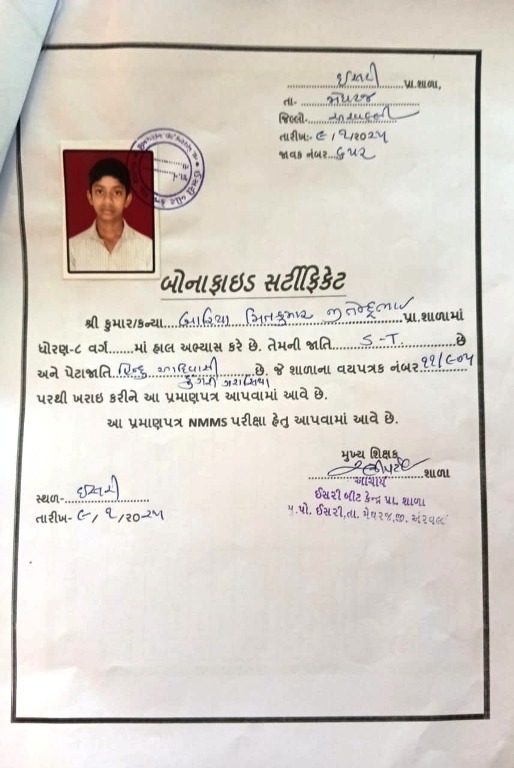 ઈસરી પ્રા.શાળા,
તા- મેઘરજ
જિલ્લો- અરવલ્લી
તારીખ:- ૯/૧/૨૦૨૫
જાવક નંબર... ૬૫૨
બોનાફાઇડ સર્ટીફિકેટ
શ્રી કુમાર/કન્યા... મિતકુમાર જીતેન્દ્રભાઈ પ્રા.શાળામાં
ધોરણ-૮ વર્ગ.......માં હાલ અભ્યાસ કરે છે. તેમની જાતિ S-T. છે
અને પેટાજાતિ હિન્દુ આદિવાસી છે. જે શાળાના વયપત્રક નંબર ૧૧/૯૦૫
ડુંગરી ગરાસિયા
પરથી ખરાઇ કરીને આ પ્રમાણપત્ર આપવામાં આવે છે.
આ પ્રમાણપત્ર NMMS પરીક્ષા હેતુ આપવામાં આવે છે.
મુખ્ય શિક્ષક
શાળા
આચાર્ય
ઈસરી બીટ કેન્દ્ર પ્રા. શાળા
મુ.પો. ઈસરી,તા. મેઘરજ,જી. અરવલ્લી
સ્થળ- ઈસરી
તારીખ- ૯/૧/૨૦૨૫